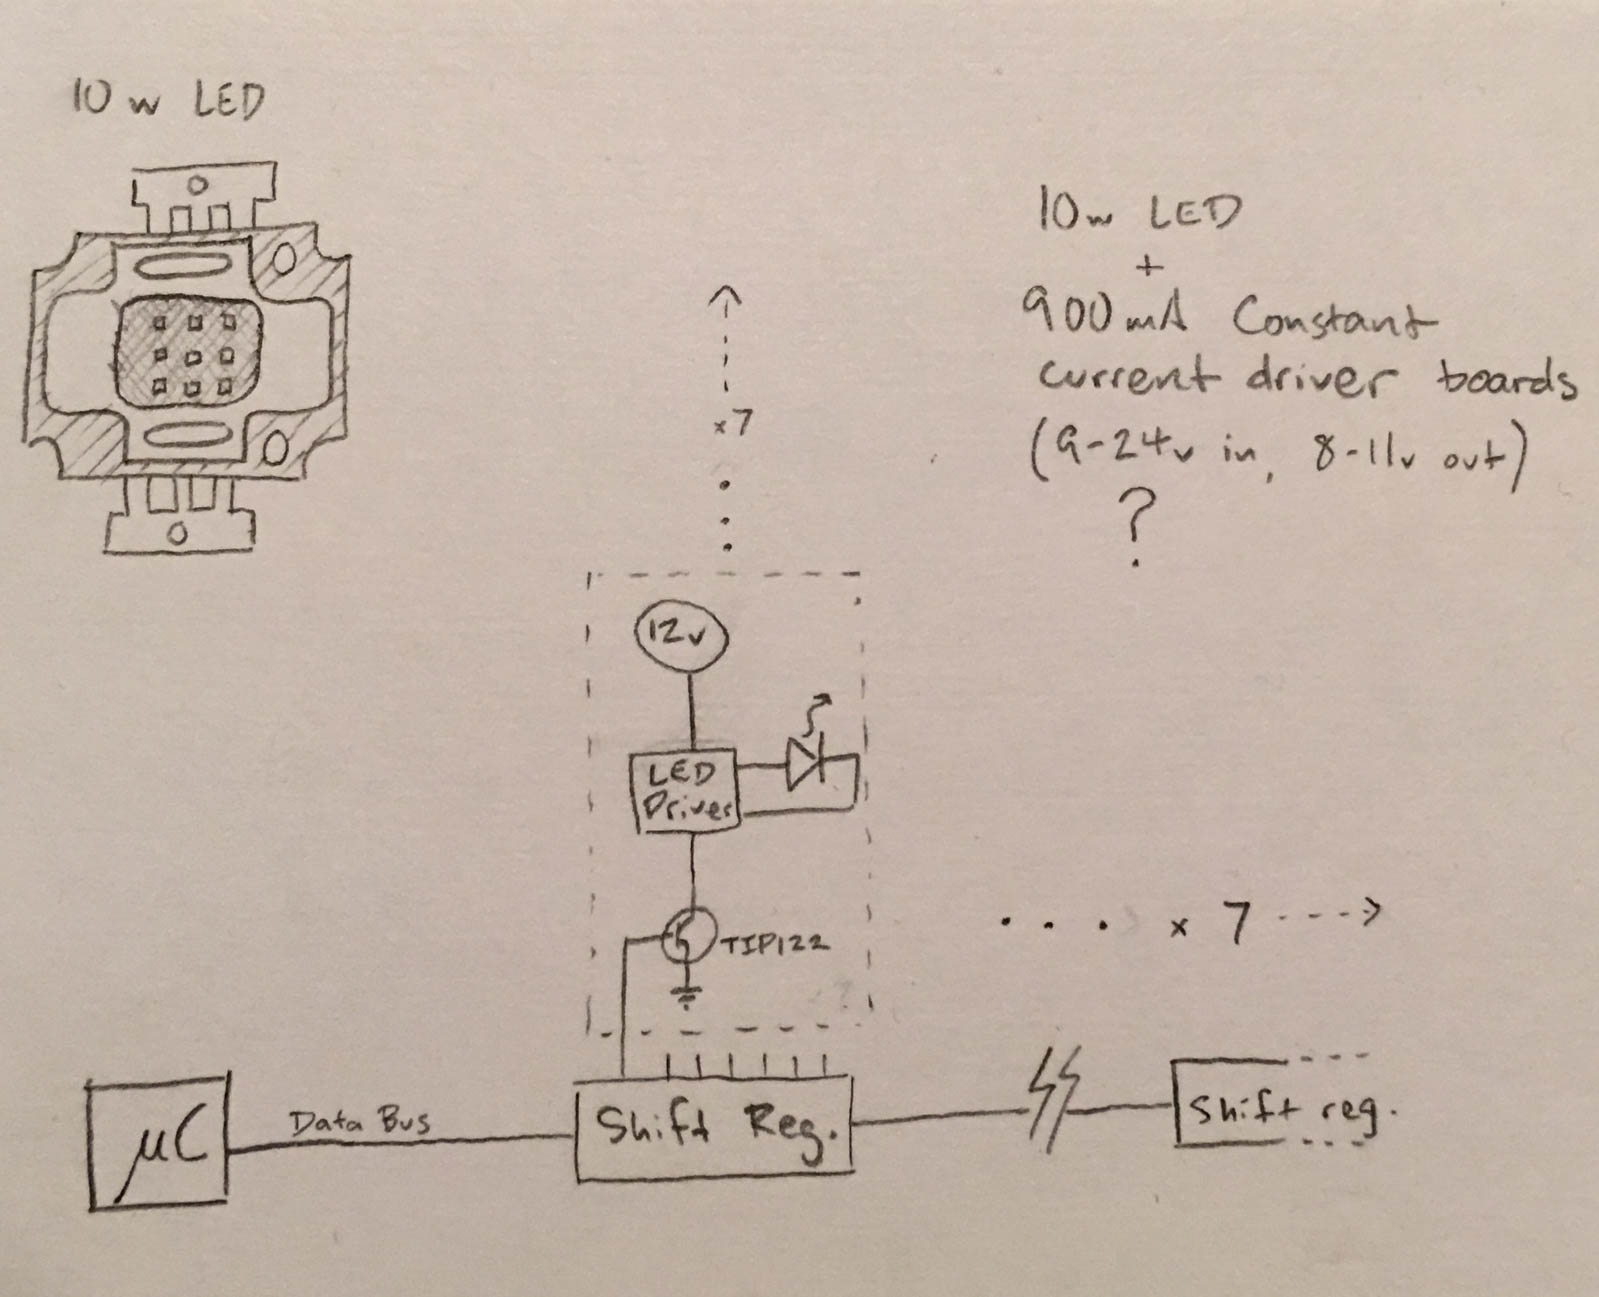 10 w LED
10w LED
+
900mA Constant
current driver boards
(9-24v in, 8-11v out)
?
x7
12v
LED
Driver
TIP122
... x 7
μC
Data Bus
Shift Reg.
Shift reg.